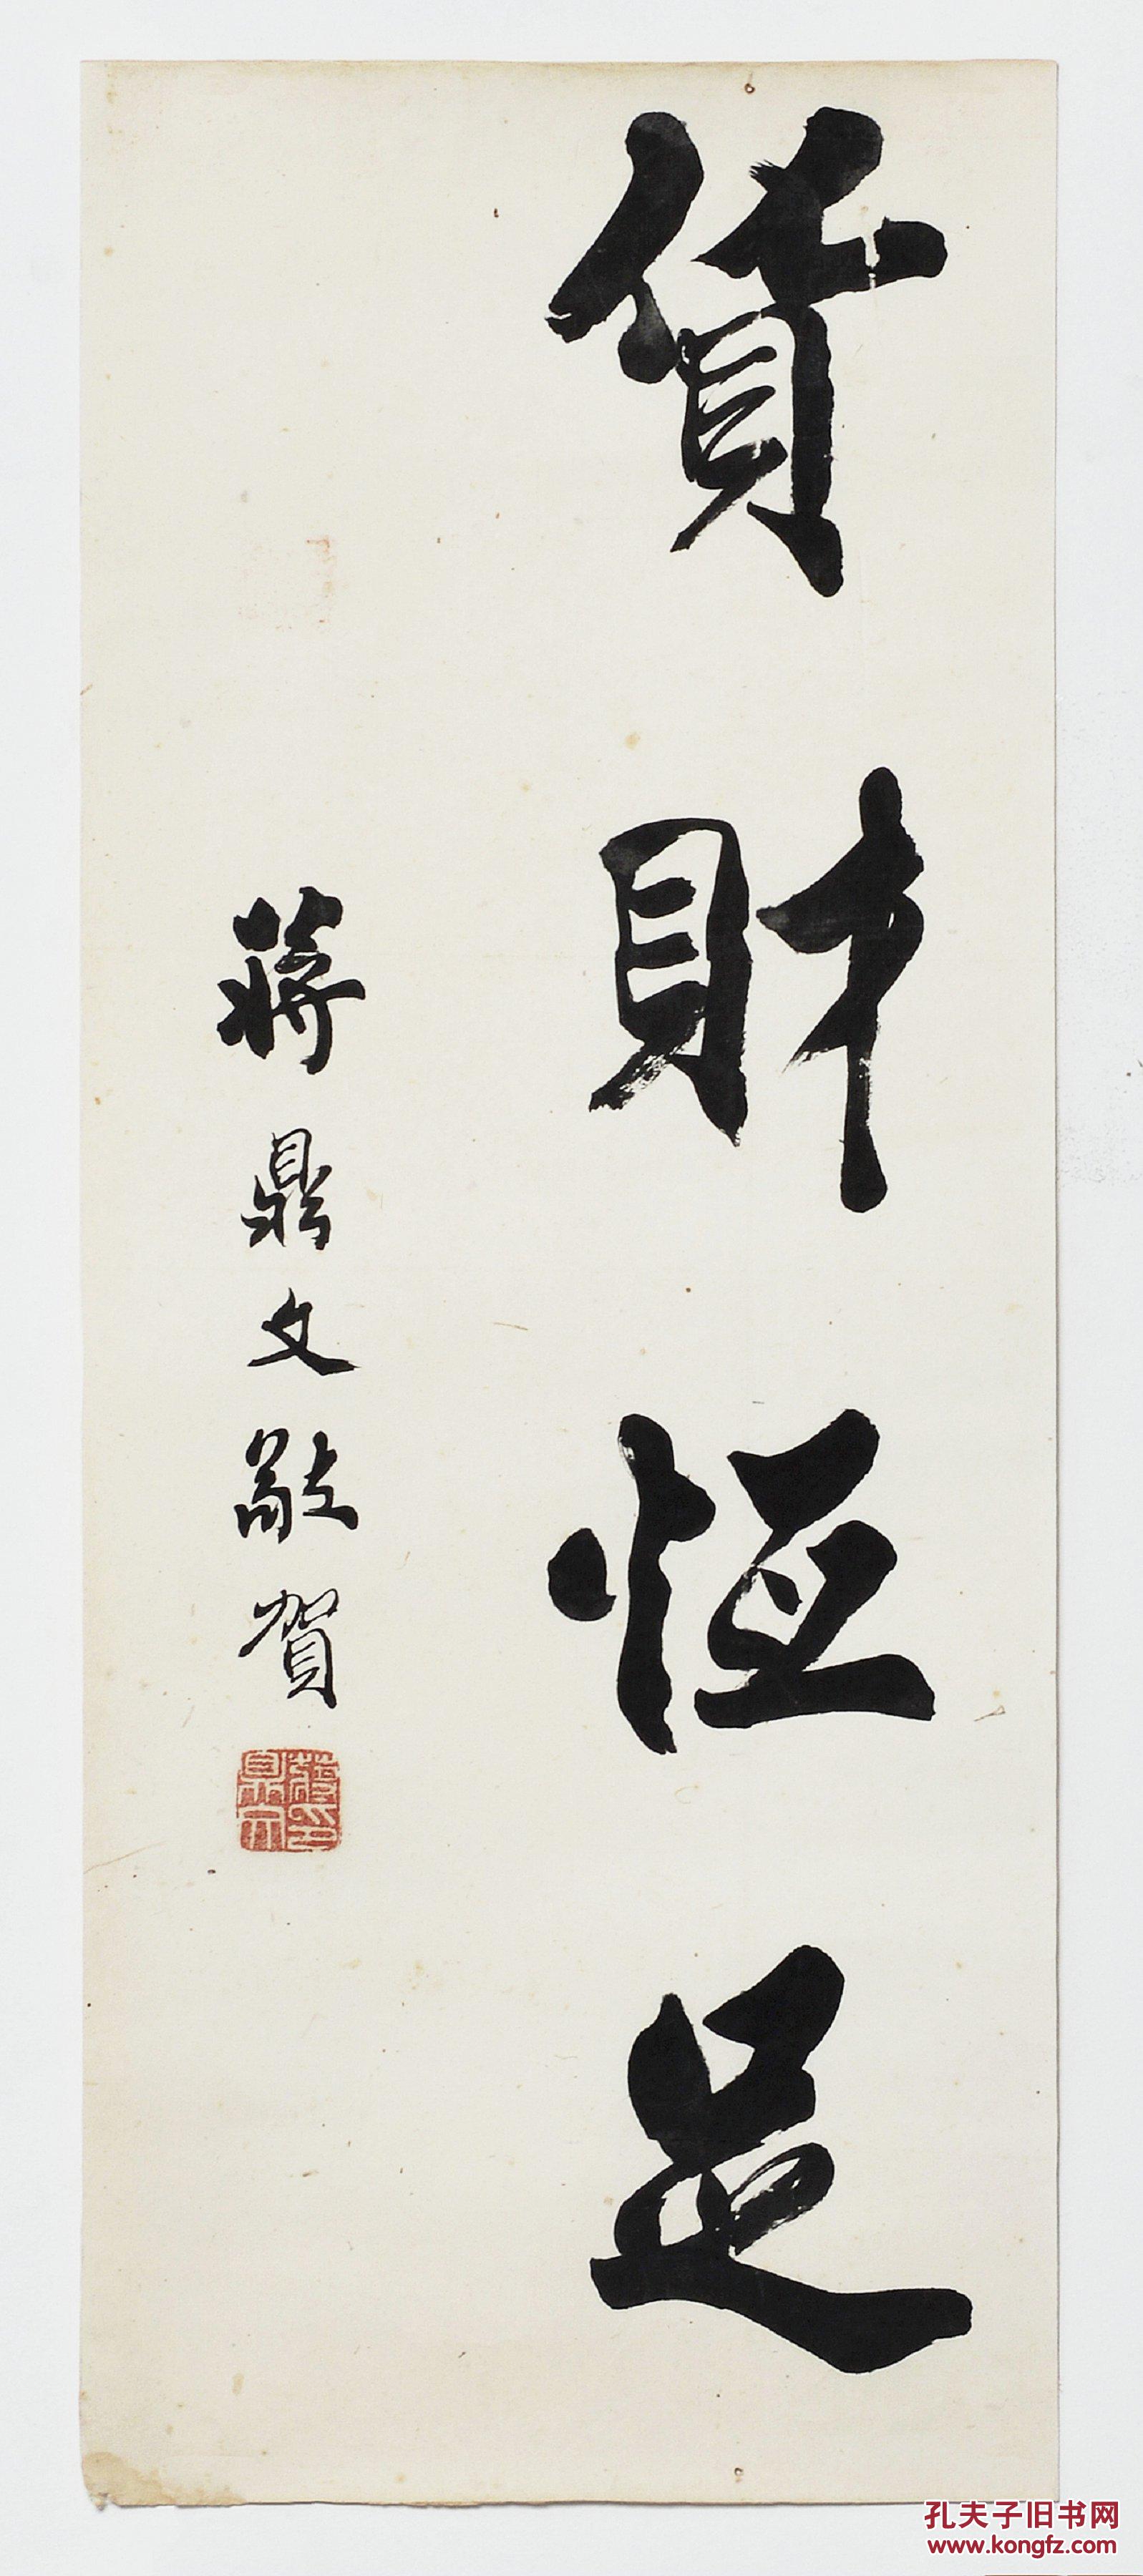 貨財恒足
蔣鼎文敬賀
蔣印鼎文
孔夫子旧书网
www.kongfz.com